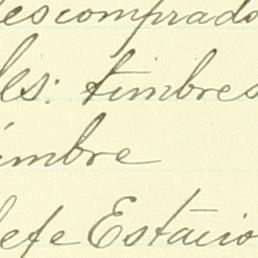 descomprado
les: timbres
imbre
Jefe Estacio